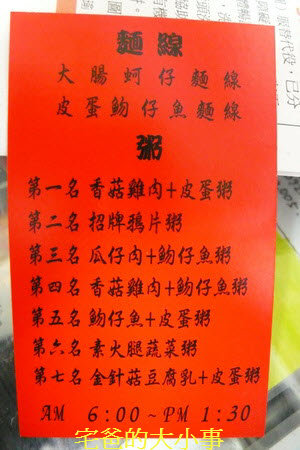 麵線
大腸蚵仔麵線
皮蛋魩仔魚麵線
粥
第一名 香菇雞肉+皮蛋粥
第二名 招牌鴉片粥
第三名 瓜仔肉+魩仔魚粥
第四名 香菇雞肉+魩仔魚粥
第五名 魩仔魚+皮蛋粥
第六名 素火腿蔬菜粥
第七名 金針菇豆腐乳+皮蛋粥
AM 6:00~PM 1:30
宅爸的大小事